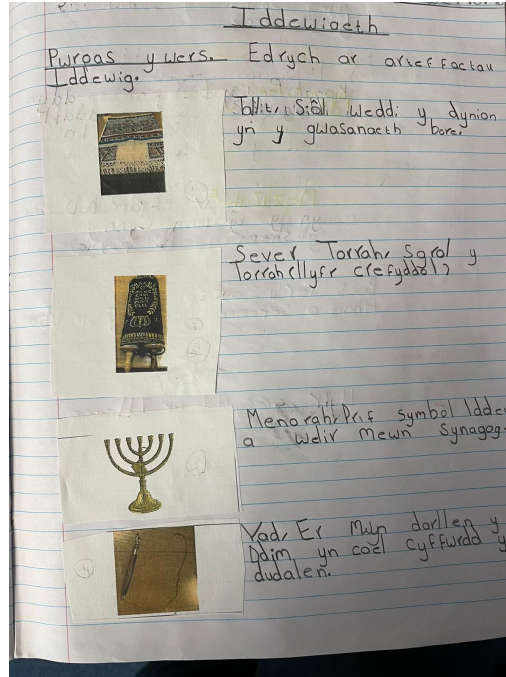 Iddewiaeth
Pwrpas y wers. Edrych ar arteffactau
Iddewig.
Siôl weddi y dynion
yn y gwasanaeth bore.
1
Sever Torrah, Sgrol y
Torrah (llyfr crefyddol)
2
Menorah, Prif symbol Idde
a welir mewn Synagog.
3
Yad, Er mwyn darllen y
Ddim yn cael cyffwrdd y
dudalen.
4